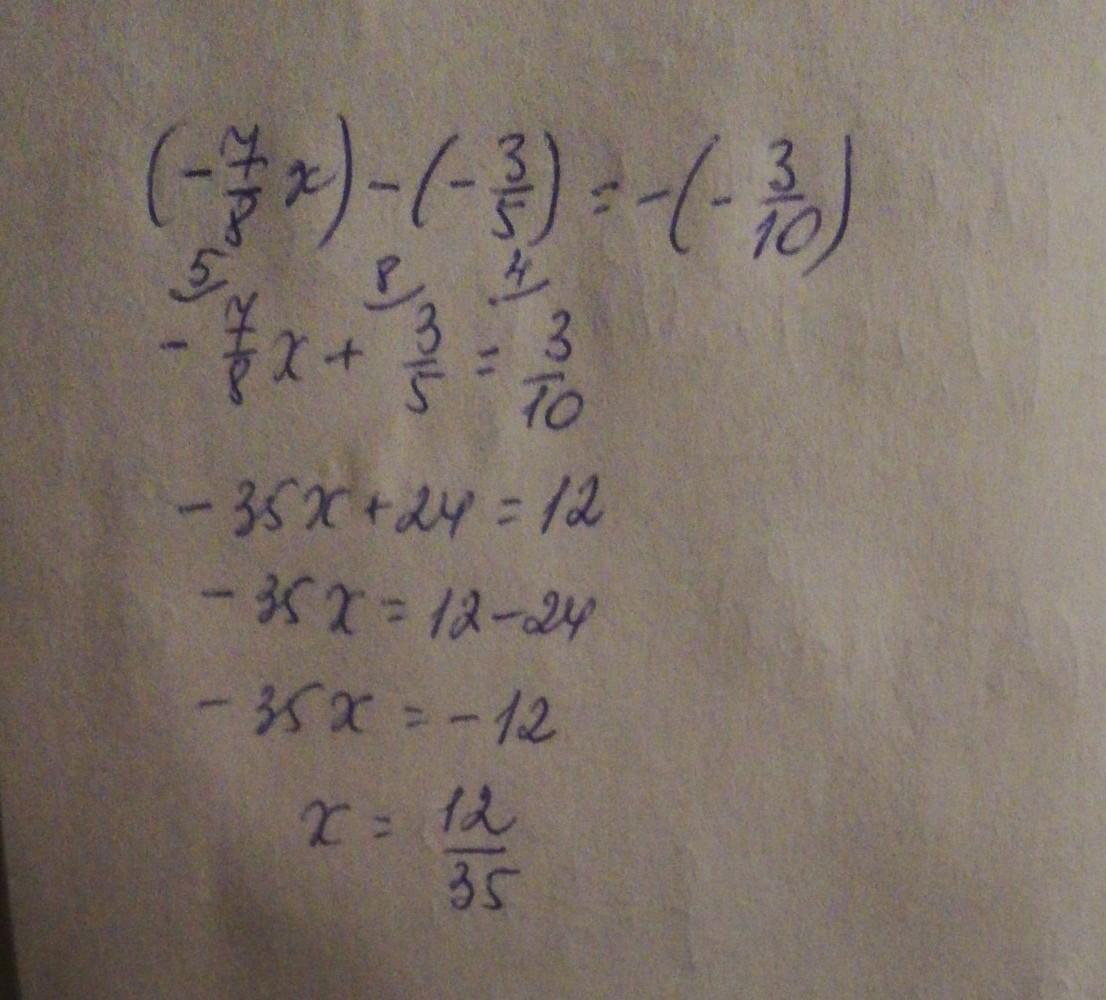 (-7/8 x) - (-3/5) = -(-3/10)
5 8 4
-7/8 x + 3/5 = 3/10
-35x+24=12
-35x=12-24
-35x=-12
x = 12/35